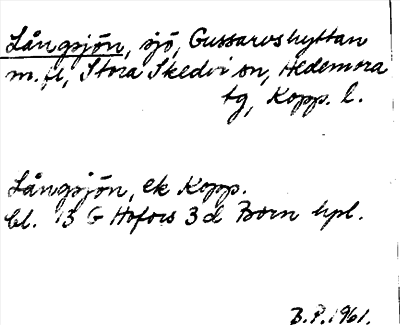 Långsjön, sjö, Gussarvshyttan
m.fl, Stora Skedvi sn, Hedemora
tg, Kopp. l.
Långsjön, ek Kopp.
bl. 13 G Hofors 3 d Born hpl.
B.P. 1961.